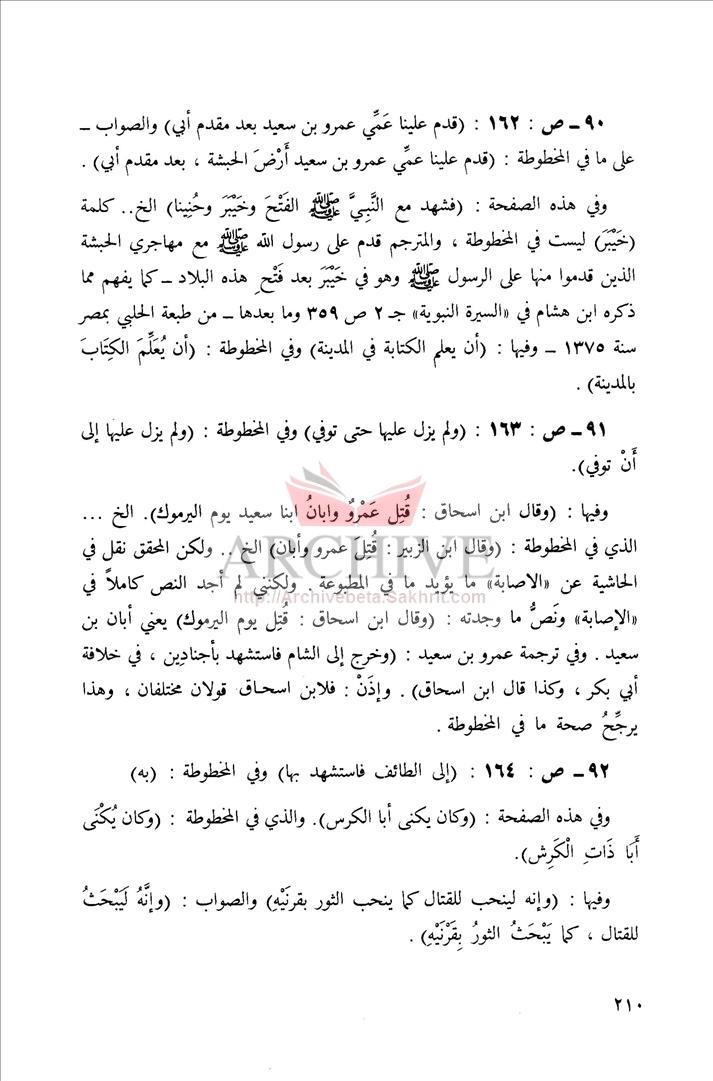 ٩٠ ـ ص : ١٦٢ : (قدم علينا عَمِّي عمرو بن سعيد بعد مقدم أبي) والصواب ـ
على ما في المخطوطة : (قدم علينا عمِّي عمرو بن سعيد أَرْضَ الحبشة ، بعد مقدم أبي) .
وفي هذه الصفحة : (فشهد مع النَّبِيَّ ﷺ الفَتْحَ وخَيْبَرَ وحُنِينا) الخ.. كلمة
(خَيْبَرَ) ليست في المخطوطة ، والمترجم قدم على رسول الله ﷺ مع مهاجري الحبشة
الذين قدموا منها على الرسول ﷺ وهو في خَيْبَرَ بعد فَتْحِ هذه البلاد ـ كما يفهم مما
ذكره ابن هشام في «السيرة النبوية» جـ ٢ ص ٣٥٩ وما بعدها ـ من طبعة الحلبي بمصر
سنة ١٣٧٥ ـ وفيها : (أن يعلم الكتابة في المدينة) وفي المخطوطة : (أن يُعَلِّمَ الكِتَابَ
بالمدينة) .
٩١ ـ ص : ١٦٣ : (ولم يزل عليها حتى توفي) وفي المخطوطة : (ولم يزل عليها إلى
أَنْ توفي).
وفيها : (وقال ابن اسحاق : قُتِل عَمْرٌو وابانُ ابنا سعيد يوم اليرموك). الخ ...
الذي في المخطوطة : (وقال ابن الزبير : قُتِلَ عمرو وأبان) الخ .. ولكن المحقق نقل في
الحاشية عن «الاصابة» ما يؤيد ما في المطبوعة . ولكنني لم أجد النص كاملاً في
«الإصابة» ونَصُّ ما وجدته : (وقال ابن اسحاق : قُتِل يوم اليرموك) يعني أبان بن
سعيد . وفي ترجمة عمرو بن سعيد : (وخرج إلى الشام فاستشهد بأجنادين ، في خلافة
أبي بكر ، وكذا قال ابن اسحاق) . وإذَنْ : فلابن اسحاق قولان مختلفان ، وهذا
يرجِّحُ صحة ما في المخطوطة .
٩٢ ـ ص : ١٦٤ : (إلى الطائف فاستشهد بها) وفي المخطوطة : (به)
وفي هذه الصفحة : (وكان يكنى أبا الكرس). والذي في المخطوطة : (وكان يُكْنَى
أَبَا ذَاتِ الْكَرِش).
وفيها : (وإنه لينحب للقتال كما ينحب الثور بقرنَيْهِ) والصواب : (وإنَّهُ لَيَبْحَثُ
للقتال ، كما يَبْحَثُ الثورُ بِقَرْنَيْهِ) .
٢١٠
ARCHIVE
http://Archivebeta.Sakhrit.com